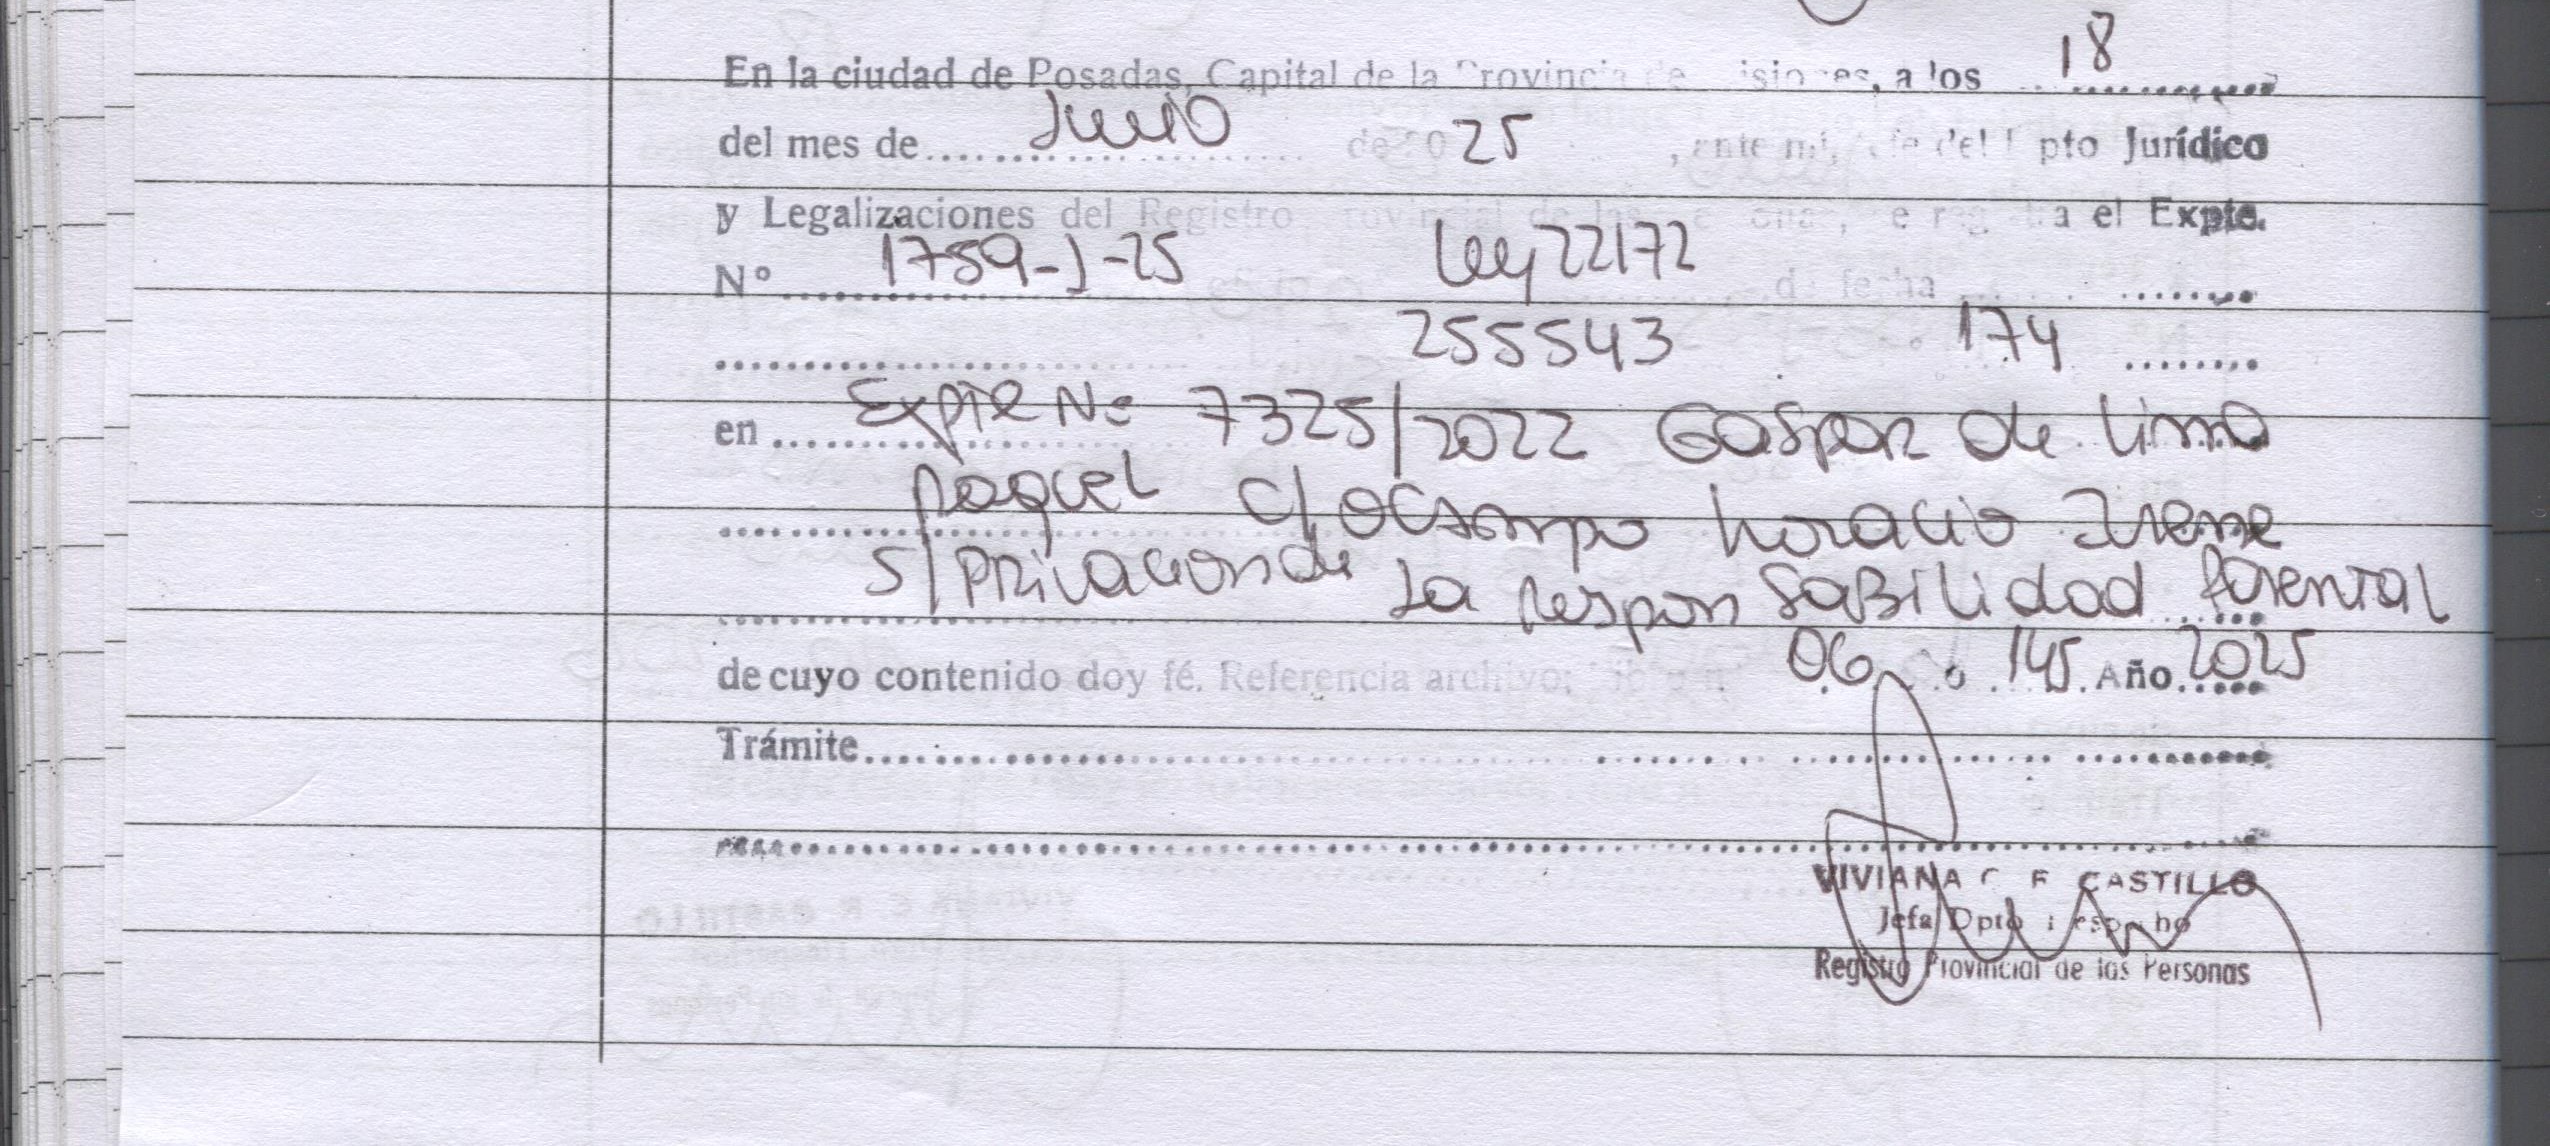 En la ciudad de Posadas, Capital de la Provincia de Misiones, a los 18
del mes de Junio de 2025, ante mi, Jefe del Dpto Jurídico
y Legalizaciones del Registro Provincial de las Personas, se registra el Expte.
Nº 1759-J-25 Ley 22172 de fecha
255543 174
en Expte Nº 7325/2022 Gaspar de Lima
Raquel c/ Ocampo Horacio Irene
s/ Privacion de La Responsabilidad Parental
de cuyo contenido doy fé. Referencia archivo: 06 145 Año 2025
Trámite
VIVIANA C. R. CASTILLO
Jefa Dpto Despacho
Registro Provincial de las Personas